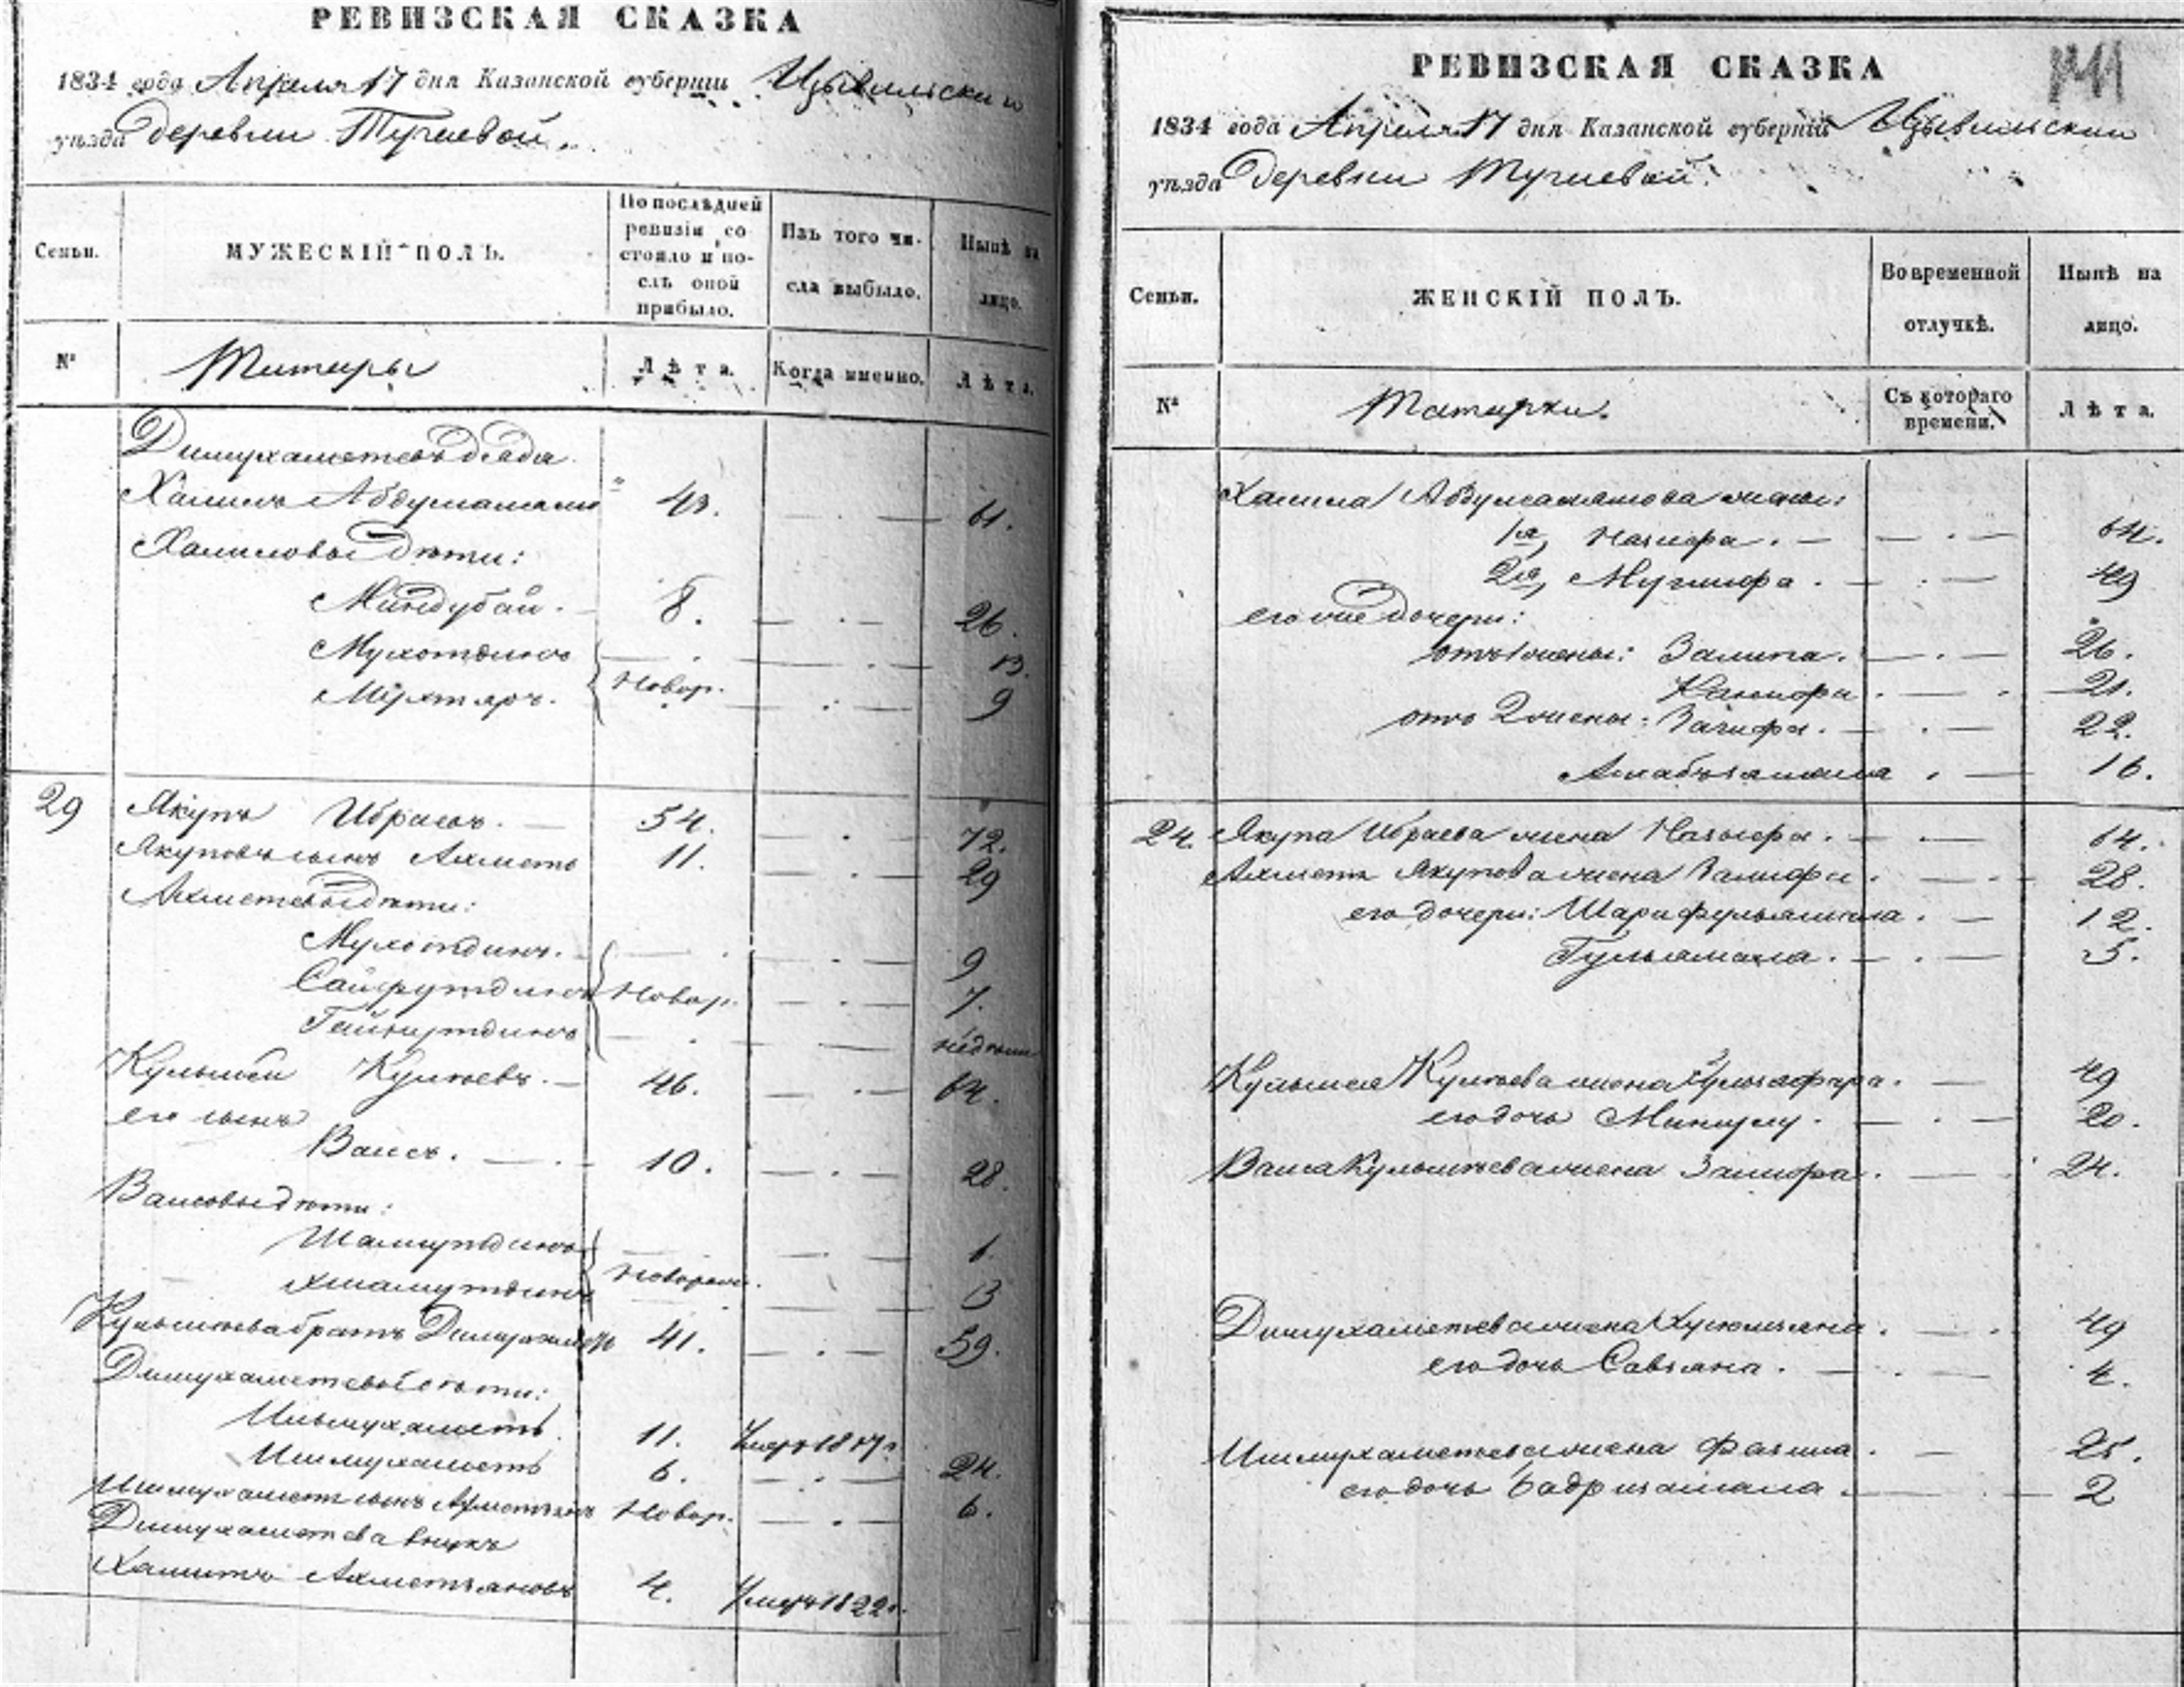 РЕВИЗСКАЯ СКАЗКА
1834 года Апреля 17 дня Казанской губерніи Цывильскаго
уѣзда деревни Тугаевой.
Семьи.
МУЖЕСКІЙ ПОЛЪ.
По послѣдней ревизіи состояло и послѣ оной прибыло.
Изъ того числа выбыло.
Нынѣ на лицо.
№
Татары
Лѣта.
Когда именно.
Лѣта.
Димухаметевъ дядя
Халилъ Абдулмѧнѧ 43. 61.
Халиловы дѣти:
Миндубай. 8. 26.
Мухотдинъ 13.
Новор.
Мухтяръ. 9
29 Якупъ Ибраевъ. 54. 72.
Якуповъ сынъ Ахметь 11. 29
Ахметевы дѣти:
Мухотдинъ. 9
Сайфутдинъ Новор. 7.
Гайнутдинъ недѣли
Кульшей Кулаевъ. 46. 64.
его сынъ
Ваисъ. 10. 28.
Ваисовы дѣти:
Шамшутдинъ 6.
Новорож.
Хисамутдинъ 3
Кульшаева братъ Димухаметь 41. 59.
Димухаметевы дѣти:
Ильмухаметь 11. Умеръ 1817 г.
Ишмухаметь 6. 24.
Ишмухаметь сынъ Ахметзянъ Новор. 6.
Димухаметева внукъ
Хамитъ Ахметзяновъ 4. Умеръ 1822 г.
РЕВИЗСКАЯ СКАЗКА
1834 года Апреля 17 дня Казанской губерніи Цывильскаго
уѣзда деревни Тугаевой.
Семьи.
ЖЕНСКІЙ ПОЛЪ.
Во временной отлучкѣ.
Нынѣ на лицо.
№
Татарки.
Съ котораго времени.
Лѣта.
Халила жоны:
1я, Назифа. 64.
2я, Муглифа. 49
его же дочери:
отъ 1 жены: Залипа. 26.
21.
отъ 2 жены: Загифа. 22.
16.
24. Якупа Ибраева жена Назифа. 64.
Ахметя Якупова жена Залифа. 28.
его дочери: Шарифульямала. 12.
Гульямала. 5.
Кульшея Кулаева жена 49
его дочь Мингулу. 20.
Ваиса Кульшаева жена Залифа. 24.
Димухаметева жена Хусюмзяна. 49
его дочь Савьяна. 4.
Ишмухаметева жена Фазила. 25.
его дочь Бадризамала. 2